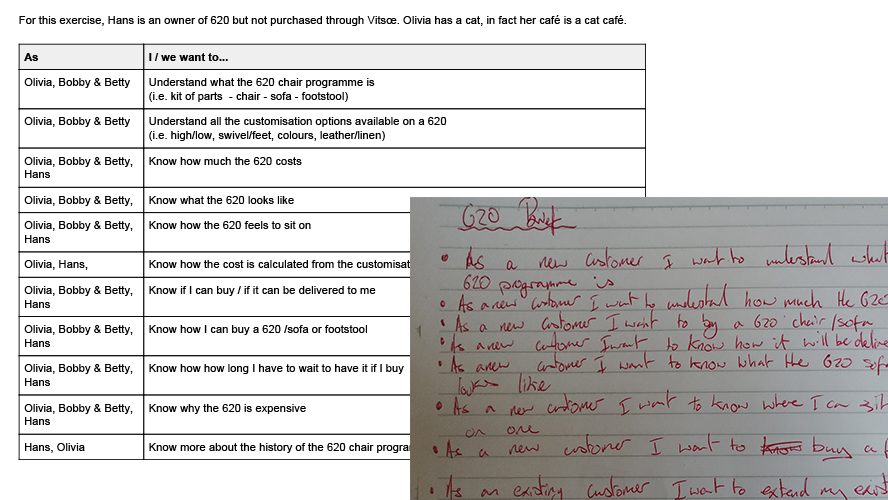 For this exercise, Hans is an owner of 620 but not purchased through Vitsœ. Olivia has a cat, in fact her café is a cat café.
As
I / we want to...
Olivia, Bobby & Betty
Understand what the 620 chair programme is
(i.e. kit of parts - chair - sofa - footstool)
Olivia, Bobby & Betty
Understand all the customisation options available on a 620
(i.e. high/low, swivel/feet, colours, leather/linen)
Olivia, Bobby & Betty,
Hans
Know how much the 620 costs
Olivia, Bobby & Betty,
Know what the 620 looks like
Olivia, Bobby & Betty,
Hans
Know how the 620 feels to sit on
Olivia, Hans,
Know how the cost is calculated from the customisat
Olivia, Bobby & Betty,
Hans
Know if I can buy / if it can be delivered to me
Olivia, Bobby & Betty,
Hans
Know how I can buy a 620 /sofa or footstool
Olivia, Bobby & Betty,
Hans
Know how how long I have to wait to have it if I buy
Olivia, Bobby & Betty,
Hans
Know why the 620 is expensive
Hans, Olivia
Know more about the history of the 620 chair progra
620 Brief
• As a new customer I want to understand what
620 programme is
• As a new customer I want to understand how much the 620
• As a new customer I want to by a 620 chair/sofa
• As a new customer I want to know how it will be delive
• As a new customer I want to know what the 620 sof
looks like
• As a new customer I want to know where I can sit
on one
• As a new customer I want to know buy a f
• As an existing customer I want to extend my exist